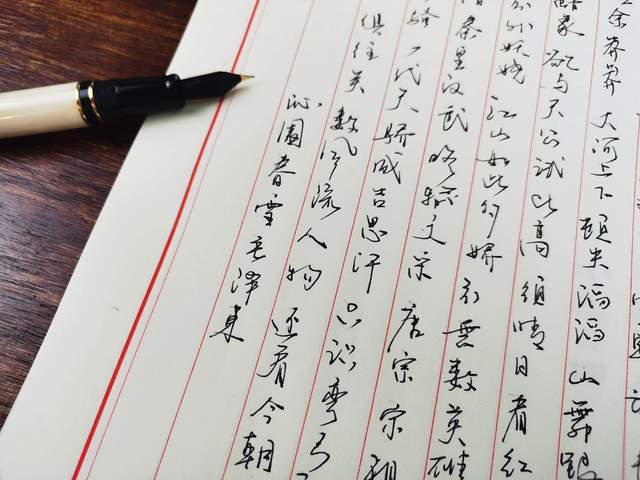 余莽莽 大河上下 頓失滔滔 山舞銀
象 欲与天公试比高 须晴日看红
分外妖娆 江山如此多娇 引無数英雄
惜秦皇汉武 略输文采 唐宗宋祖
骚 一代天骄成吉思汗 只识弯弓
俱往矣 数风流人物 还看今朝
沁園春雪毛泽东